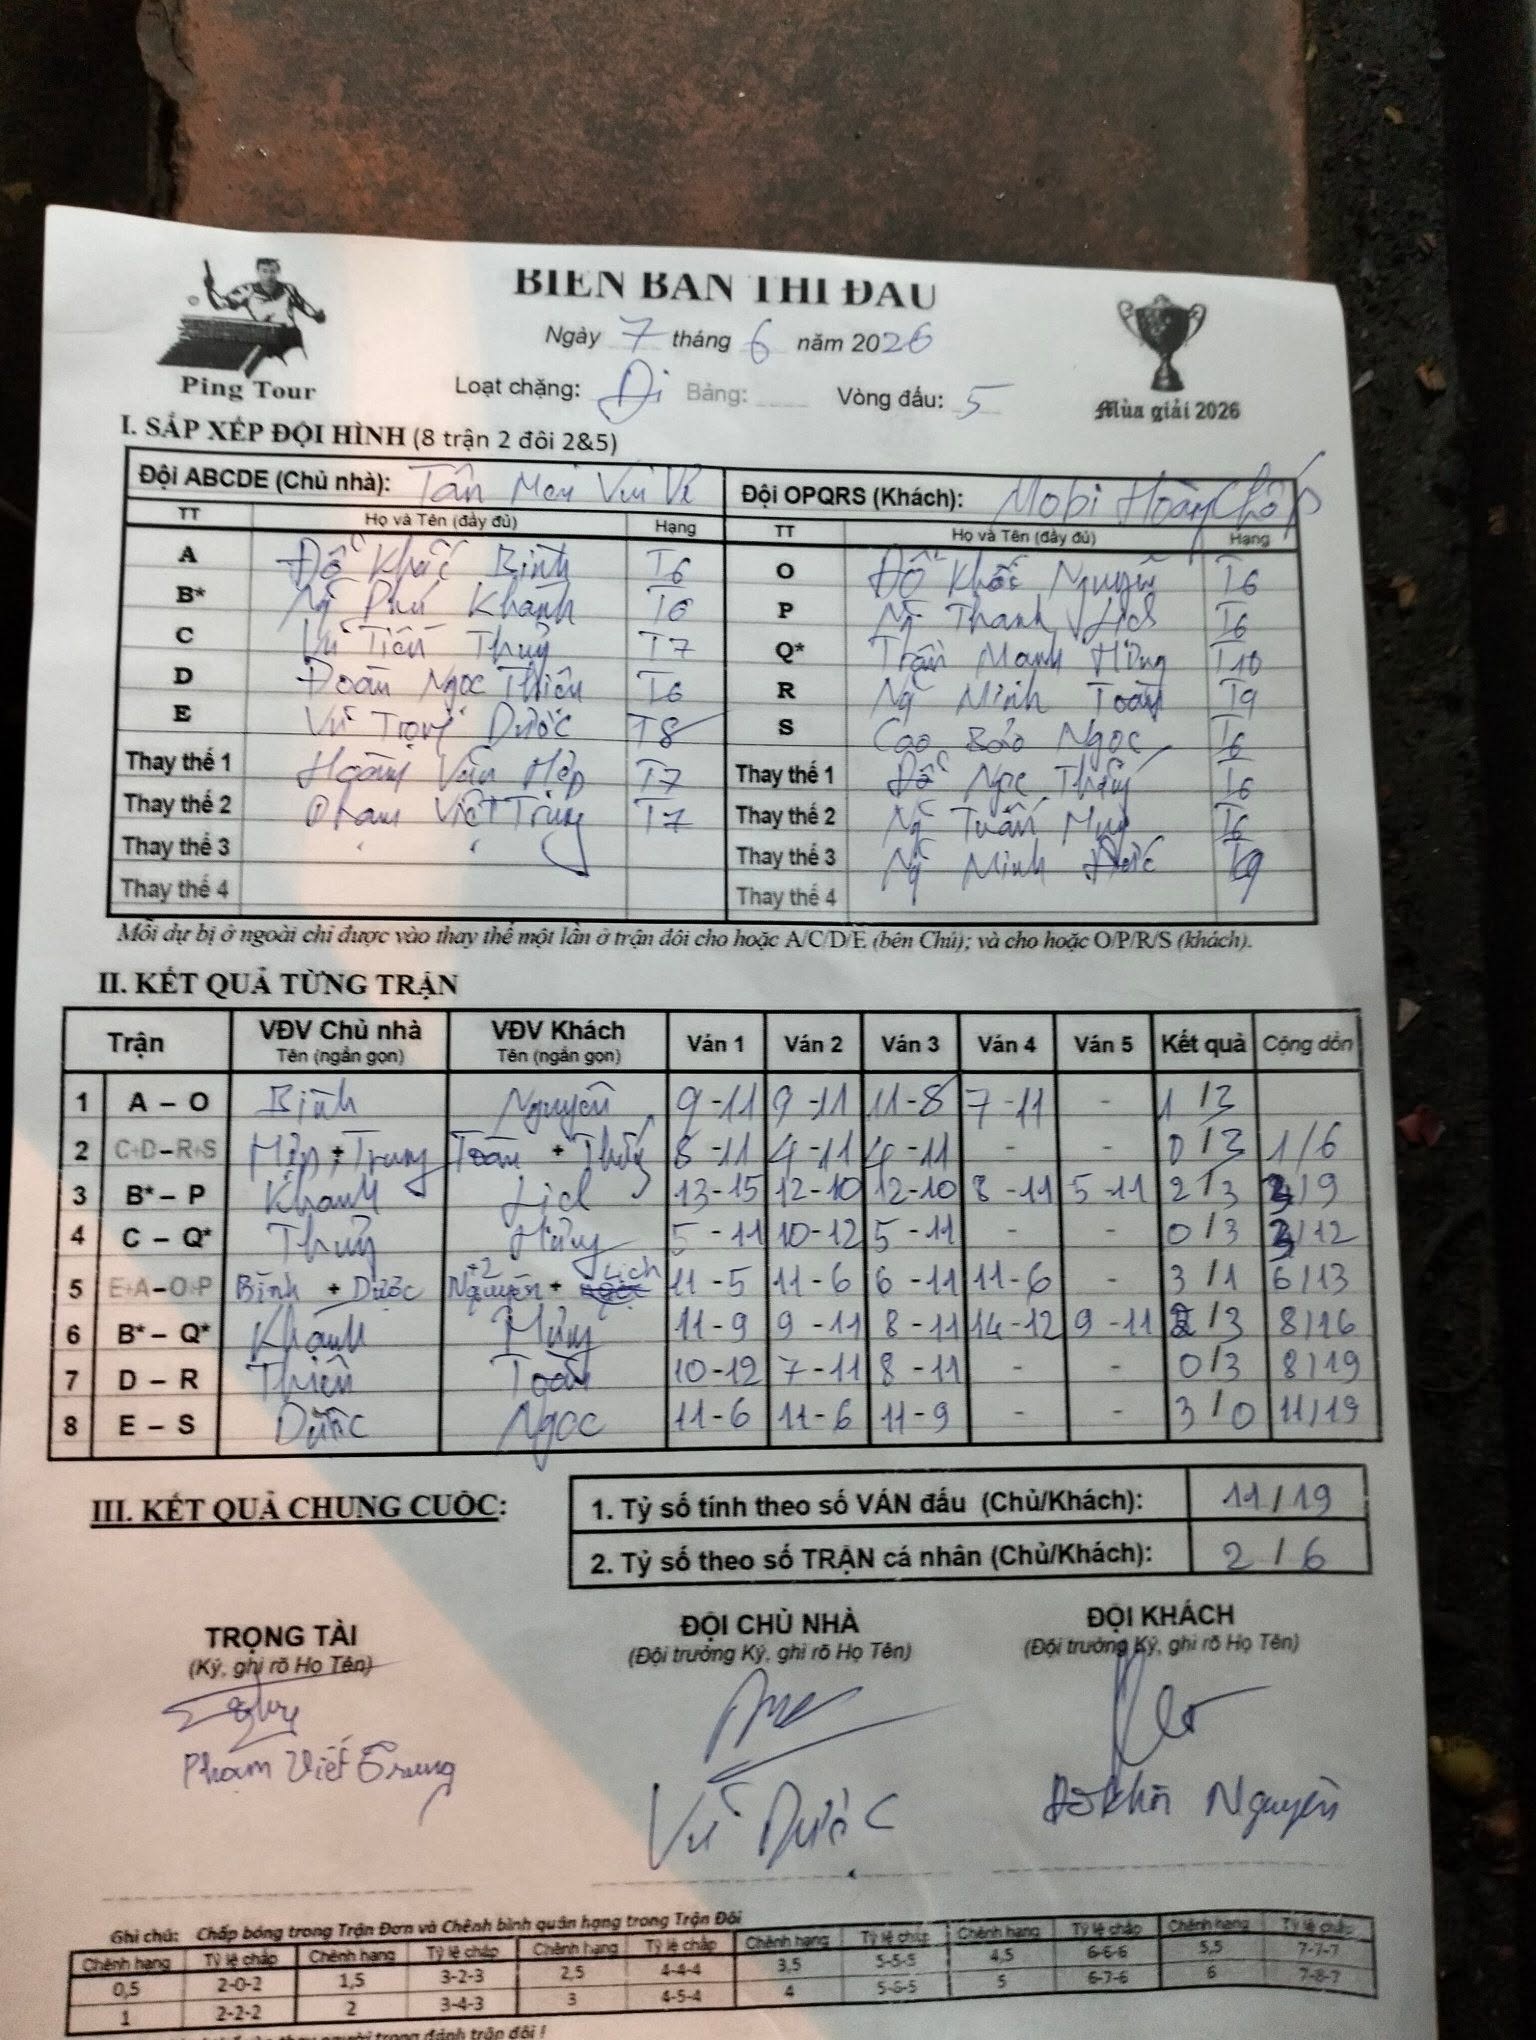 BIÊN BẢN THI ĐẤU
Ngày 7 tháng 6 năm 2026
Ping Tour
Loạt chặng: Đi Bảng: Vòng đấu: 5
Mùa giải 2026
I. SẮP XẾP ĐỘI HÌNH (8 trận 2 đôi 2&5)
Đội ABCDE (Chủ nhà): Tân Mai Vui Vẻ Đội OPQRS (Khách): Mobi Hoàng
TT Họ và Tên (đầy đủ) Hạng TT Họ và Tên (đầy đủ) Hạng
A Đỗ Khắc Bình T6 O Đỗ Khôi Nguyên T6
B* Ng Phú Khánh T6 P Ng Thanh Lịch T6
C Vũ Tiến Thuỷ T7 Q* Trần Mạnh Hùng T10
D Đoàn Ngọc Thiên T6 R Ng Minh Toàn T9
E Vũ Trọng Dược T8 S Cao Bảo Ngọc T6
Thay thế 1 Hoàng Văn T7 Thay thế 1 Ngọc T6
Thay thế 2 Phạm Việt Trung T7 Thay thế 2 Ng Tuấn T6
Thay thế 3 Thay thế 3 Ng Minh Đức T9
Thay thế 4 Thay thế 4
Mỗi dự bị ở ngoài chỉ được vào thay thế một lần ở trận đôi cho hoặc A/C/D/E (bên Chủ); và cho hoặc O/P/R/S (khách).
II. KẾT QUẢ TỪNG TRẬN
Trận VĐV Chủ nhà VĐV Khách Ván 1 Ván 2 Ván 3 Ván 4 Ván 5 Kết quả Cộng dồn
Tên (ngắn gọn) Tên (ngắn gọn)
1 A – O Bình Nguyên 9-11 9-11 11-8 7-11 - 1/3
2 C+D–R+S + Trung Toàn + 8-11 4-11 4-11 - - 0/3 1/6
3 B* – P Khánh Lịch 13-15 12-10 12-10 8-11 5-11 2/3 3/9
4 C – Q* Thuỷ Hùng 5-11 10-12 5-11 - - 0/3 3/12
+2 Lịch
5 E+A–O+P Bình + Dược Nguyên + 11-5 11-6 6-11 11-6 - 3/1 6/13
6 B* – Q* Khánh Hùng 11-9 9-11 8-11 14-12 9-11 2/3 8/16
7 D – R Thiên Toàn 10-12 7-11 8-11 - - 0/3 8/19
8 E – S Dược Ngọc 11-6 11-6 11-9 - - 3/0 11/19
III. KẾT QUẢ CHUNG CUỘC:
1. Tỷ số tính theo số VÁN đấu (Chủ/Khách): 11/19
2. Tỷ số theo số TRẬN cá nhân (Chủ/Khách): 2/6
TRỌNG TÀI ĐỘI CHỦ NHÀ ĐỘI KHÁCH
(Ký, ghi rõ Họ Tên) (Đội trưởng Ký, ghi rõ Họ Tên) (Đội trưởng Ký, ghi rõ Họ Tên)
Phạm Việt Trung Vũ Dược Đỗ Khôi Nguyên
Ghi chú: Chấp bóng trong Trận Đơn và Chênh bình quân hạng trong Trận Đôi
Chênh hạng Tỷ lệ chấp Chênh hạng Tỷ lệ chấp Chênh hạng Tỷ lệ chấp Chênh hạng Tỷ lệ chấp Chênh hạng Tỷ lệ chấp Chênh hạng Tỷ lệ chấp
0,5 2-0-2 1,5 3-2-3 2,5 4-4-4 3,5 5-5-5 4,5 6-6-6 5,5 7-7-7
1 2-2-2 2 3-4-3 3 4-5-4 4 5-6-5 5 6-7-6 6 7-8-7
thay người trong đánh trận đôi !